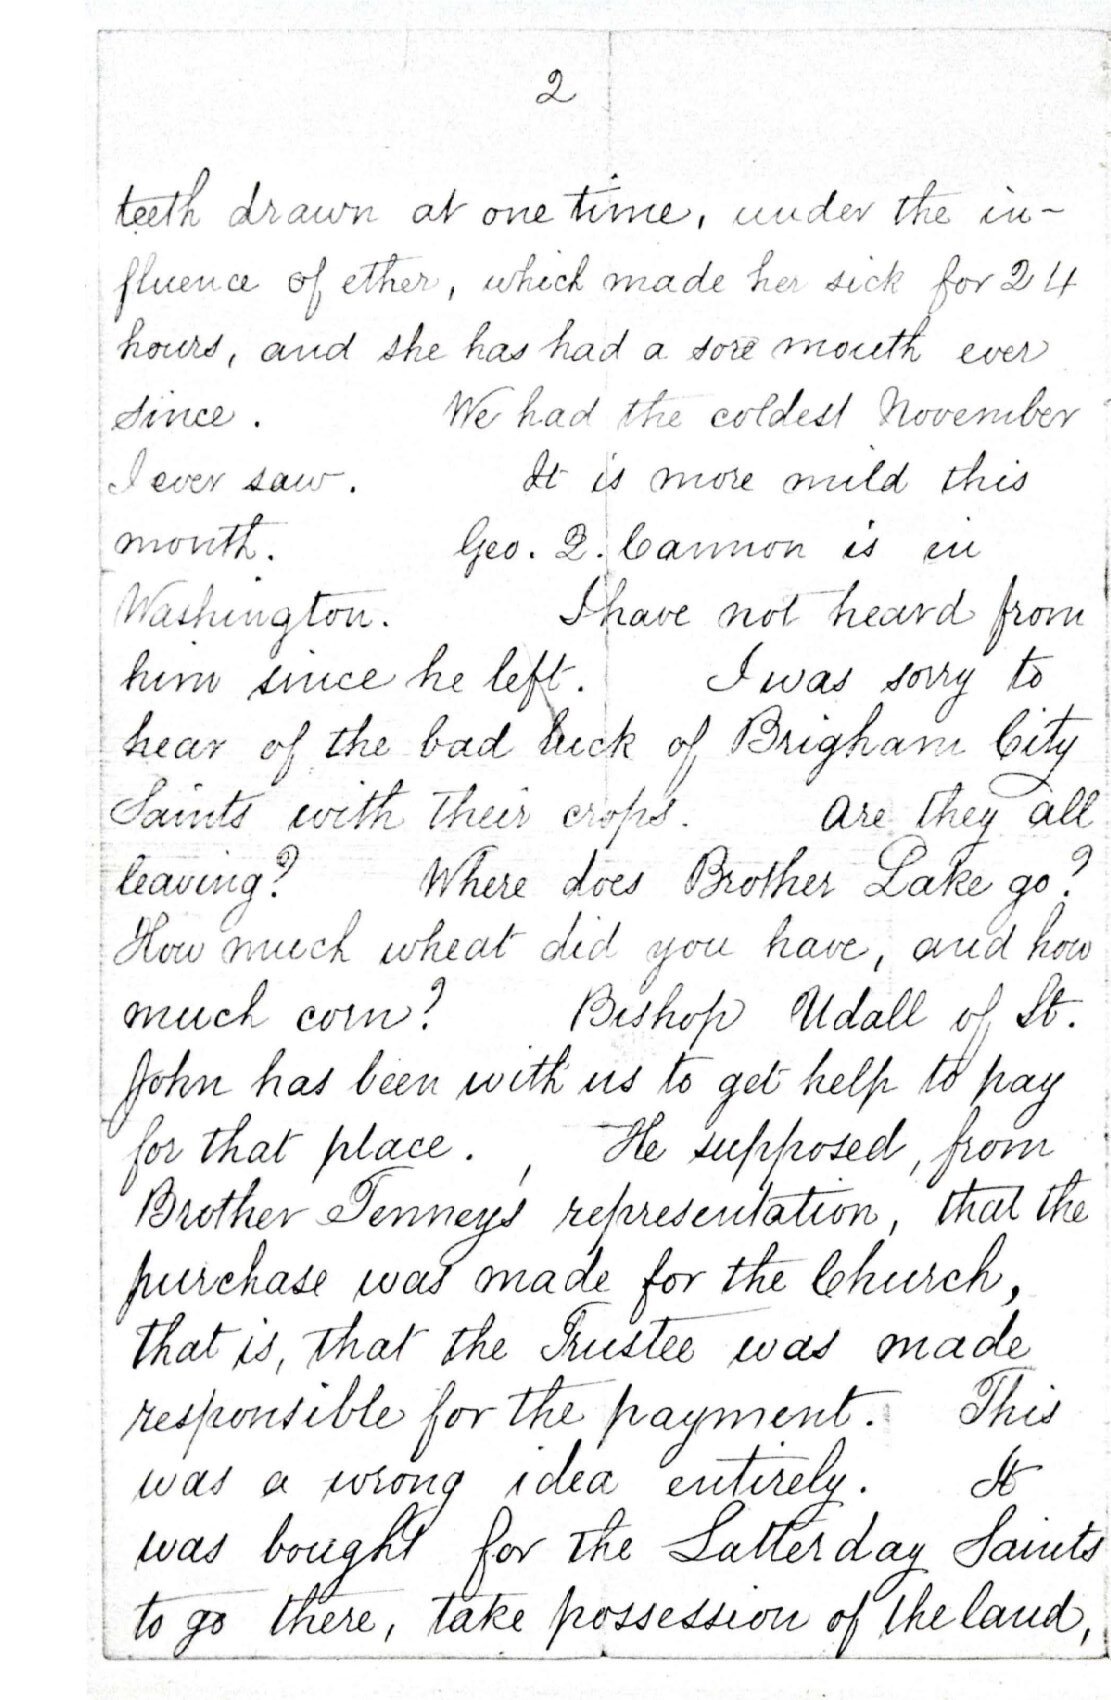 2
teeth drawn at one time, under the in-
fluence of ether, which made her sick for 24
hours, and she has had a sore mouth ever
since. We had the coldest November
I ever saw. It is more mild this
month. Geo. Q. Cannon is in
Washington. I have not heard from
him since he left. I was sorry to
hear of the bad luck of Brigham City
Saints with their crops. Are they all
leaving? Where does Brother Lake go?
How much wheat did you have, and how
much corn? Bishop Udall of St.
John has been with us to get help to pay
for that place. He supposed, from
Brother Tenney's representation, that the
purchase was made for the Church,
that is, that the Trustee was made
responsible for the payment. This
was a wrong idea entirely. It
was bought for the Latterday Saints
to go there, take possession of the land,